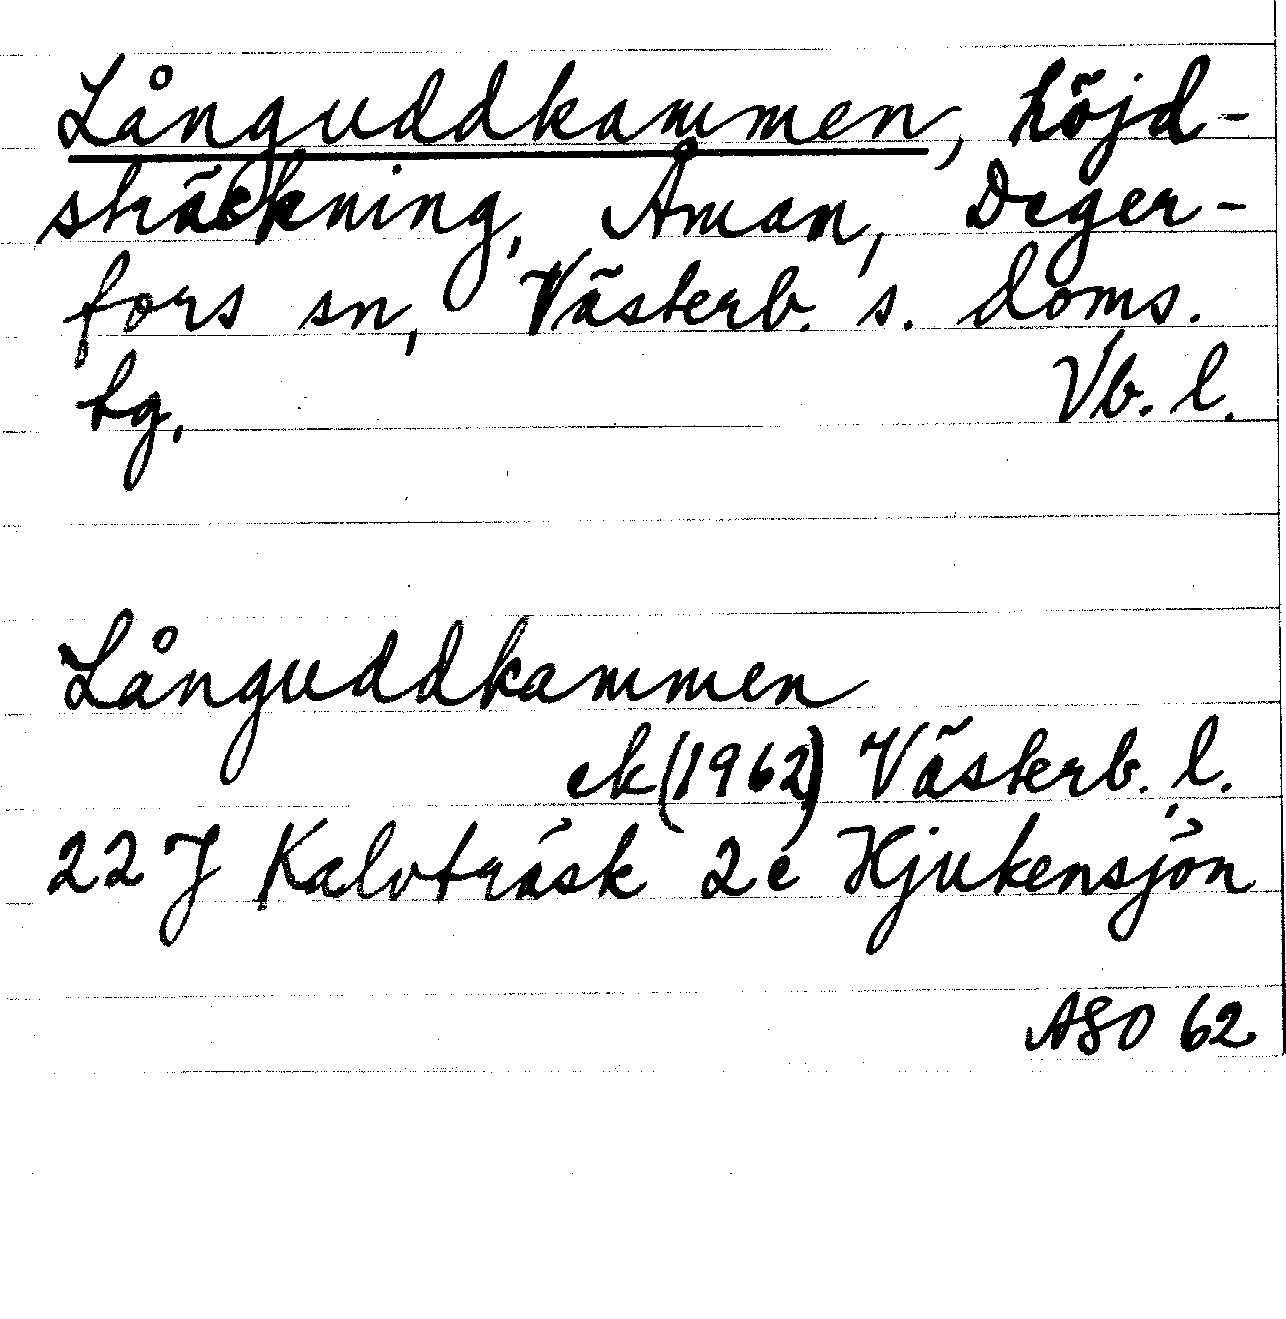 Långuddkammen, höjd-
sträckning, Åman, Deger-
fors sn, Västerb. s. doms.
hg, Vb. l.
Långuddkammen
ek (1962) Västerb. l.
22 J Kalvträsk 2c Hjukensjön
ASO 62